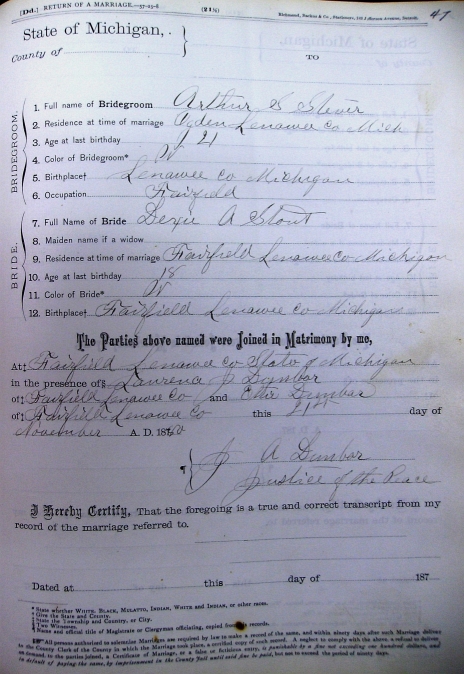 [Dd.] RETURN OF A MARRIAGE.—57-25-8 (21½) Richmond, Backus & Co., Stationers, Detroit. 47
State of Michigan,
County of
TO
BRIDEGROOM.
1. Full name of Bridegroom Arthur S Stever
2. Residence at time of marriage Ogden Lenawee Co Mich
3. Age at last birthday 21
4. Color of Bridegroom* W
5. Birthplace† Lenawee Co Michigan
6. Occupation Fairfield
BRIDE.
7. Full Name of Bride A Stout
8. Maiden name if a widow
9. Residence at time of marriage Fairfield Lenawee Co Michigan
10. Age at last birthday 18
11. Color of Bride* W
12. Birthplace† Fairfield Lenawee Co Michigan
The Parties above named were Joined in Matrimony by me,
At‡ Fairfield Lenawee Co State of Michigan
in the presence of§ Dunbar
of‡ Fairfield Lenawee Co and Dunbar
of‡ Fairfield Lenawee Co this 21st day of
November A. D. 187
¶ J A Dunbar
Justice of the Peace
I Hereby Certify, That the foregoing is a true and correct transcript from my
record of the marriage referred to.
Dated at this day of 187
* State whether WHITE, BLACK, MULATTO, INDIAN, WHITE and INDIAN, or other races.
† Give the State and County.
‡ State the Township and County, or City.
§ Two Witnesses.
¶ Name and official title of Magistrate or Clergyman officiating, copied from records.
All persons authorized to solemnize Marriages are required by law to make a record of the same, and within ninety days after such Marriage deliver
to the County Clerk of the County in which the Marriage took place, a certified copy of such record. A neglect to comply with the above, a refusal to deliver
on demand to the parties joined, a Certificate of Marriage, or a false or fictitious entry, is punishable by a fine not exceeding one hundred dollars, and
in default of paying the same, by imprisonment in the County Jail until said fine is paid, but not to exceed the period of ninety days.